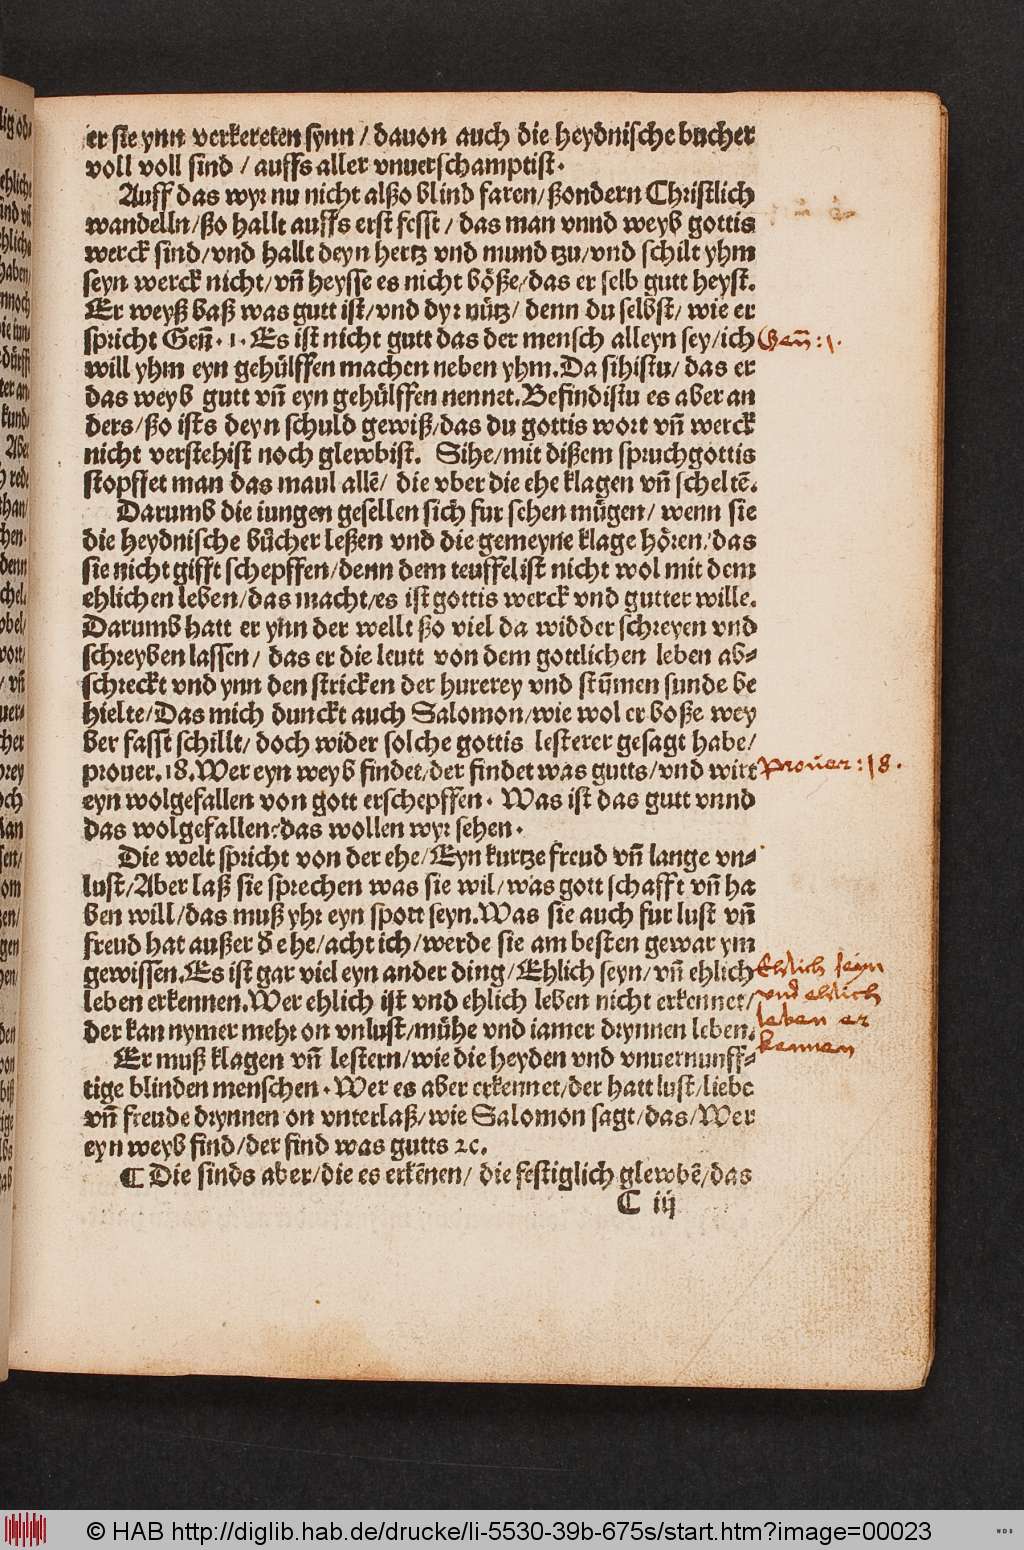 er sie ynn verkereten synn / dauon auch die heydnische bucher
voll voll sind / auffs aller vnuerschamptist.
Auff das wyr nu nicht alßo blind faren/ßondern Christlich
wandelln/ßo hallt auffs erst fesst / das man vnnd weyb gottis
werck sind/vnd hallt deyn hertz vnd mund tzu/vnd schilt yhm
seyn werck nicht/vñ heysse es nicht böße/das er selb gutt heyst.
Er weyß baß was gutt ist/vnd dyr nütz/ denn du selbst/ wie er
spricht Geñ. 1. Es ist nicht gutt das der mensch alleyn sey/ich
Geñ: 1.
will yhm eyn gehülffen machen neben yhm.Da sihistu/ das er
das weyb gutt vñ eyn gehülffen nennet.Befindistu es aber an
ders/ßo ists deyn schuld gewiß/das du gottis wort vñ werck
nicht verstehist noch glewbist. Sihe/mit dißem spruchgottis
stopffet man das maul allẽ/ die vber die ehe klagen vñ scheltẽ.
Darumb die iungen gesellen sich fur sehen mügen/ wenn sie
die heydnische bücher leßen vnd die gemeyne klage hören/das
sie nicht gifft schepffen/denn dem teuffel ist nicht wol mit dem
ehlichen leben/das macht/es ist gottis werck vnd gutter wille.
Darumb hatt er ynn der wellt ßo viel da widder schreyen vnd
schreyben lassen/ das er die leutt von dem gottlichen leben ab⸗
schreckt vnd ynn den stricken der hurerey vnd stũmen sunde be
hielte/Das mich dunckt auch Salomon/wie wol er boße wey
ber fasst schillt/ doch wider solche gottis lesterer gesagt habe/
prouer.18.Wer eyn weyb findet/der findet was gutts/vnd wirt
Prouer: 18.
eyn wolgefallen von gott erschepffen. Was ist das gutt vnnd
das wolgefallen?das wollen wyr sehen.
Die welt spricht von der ehe/Eyn kurtze freud vñ lange vn⸗
lust/Aber laß sie sprechen was sie wil/was gott schafft vñ ha
ben will/das muß yhr eyn spott seyn.Was sie auch fur lust vñ
freud hat außer d̕ ehe/acht ich/werde sie am besten gewar ym
gewissen.Es ist gar viel eyn ander ding/Ehlich seyn/vñ ehlich
Ehlich sein
leben erkennen.Wer ehlich ist vnd ehlich leben nicht erkennet/
vnd ehlich
der kan nymer mehr on vnlust/mühe vnd iamer drynnen leben.
leben er
kennen
Er muß klagen vñ lestern/wie die heyden vnd vnuernunff⸗
tige blinden menschen. Wer es aber erkennet/der hatt lust/liebe
vñ freude drynnen on vnterlaß/wie Salomon sagt/das/Wer
eyn weyb find/der find was gutts ꝛc.
¶ Die sinds aber/die es erkẽnen/ die festiglich glewbẽ/das
C iij
© HAB http://diglib.hab.de/drucke/li-5530-39b-675s/start.htm?image=00023